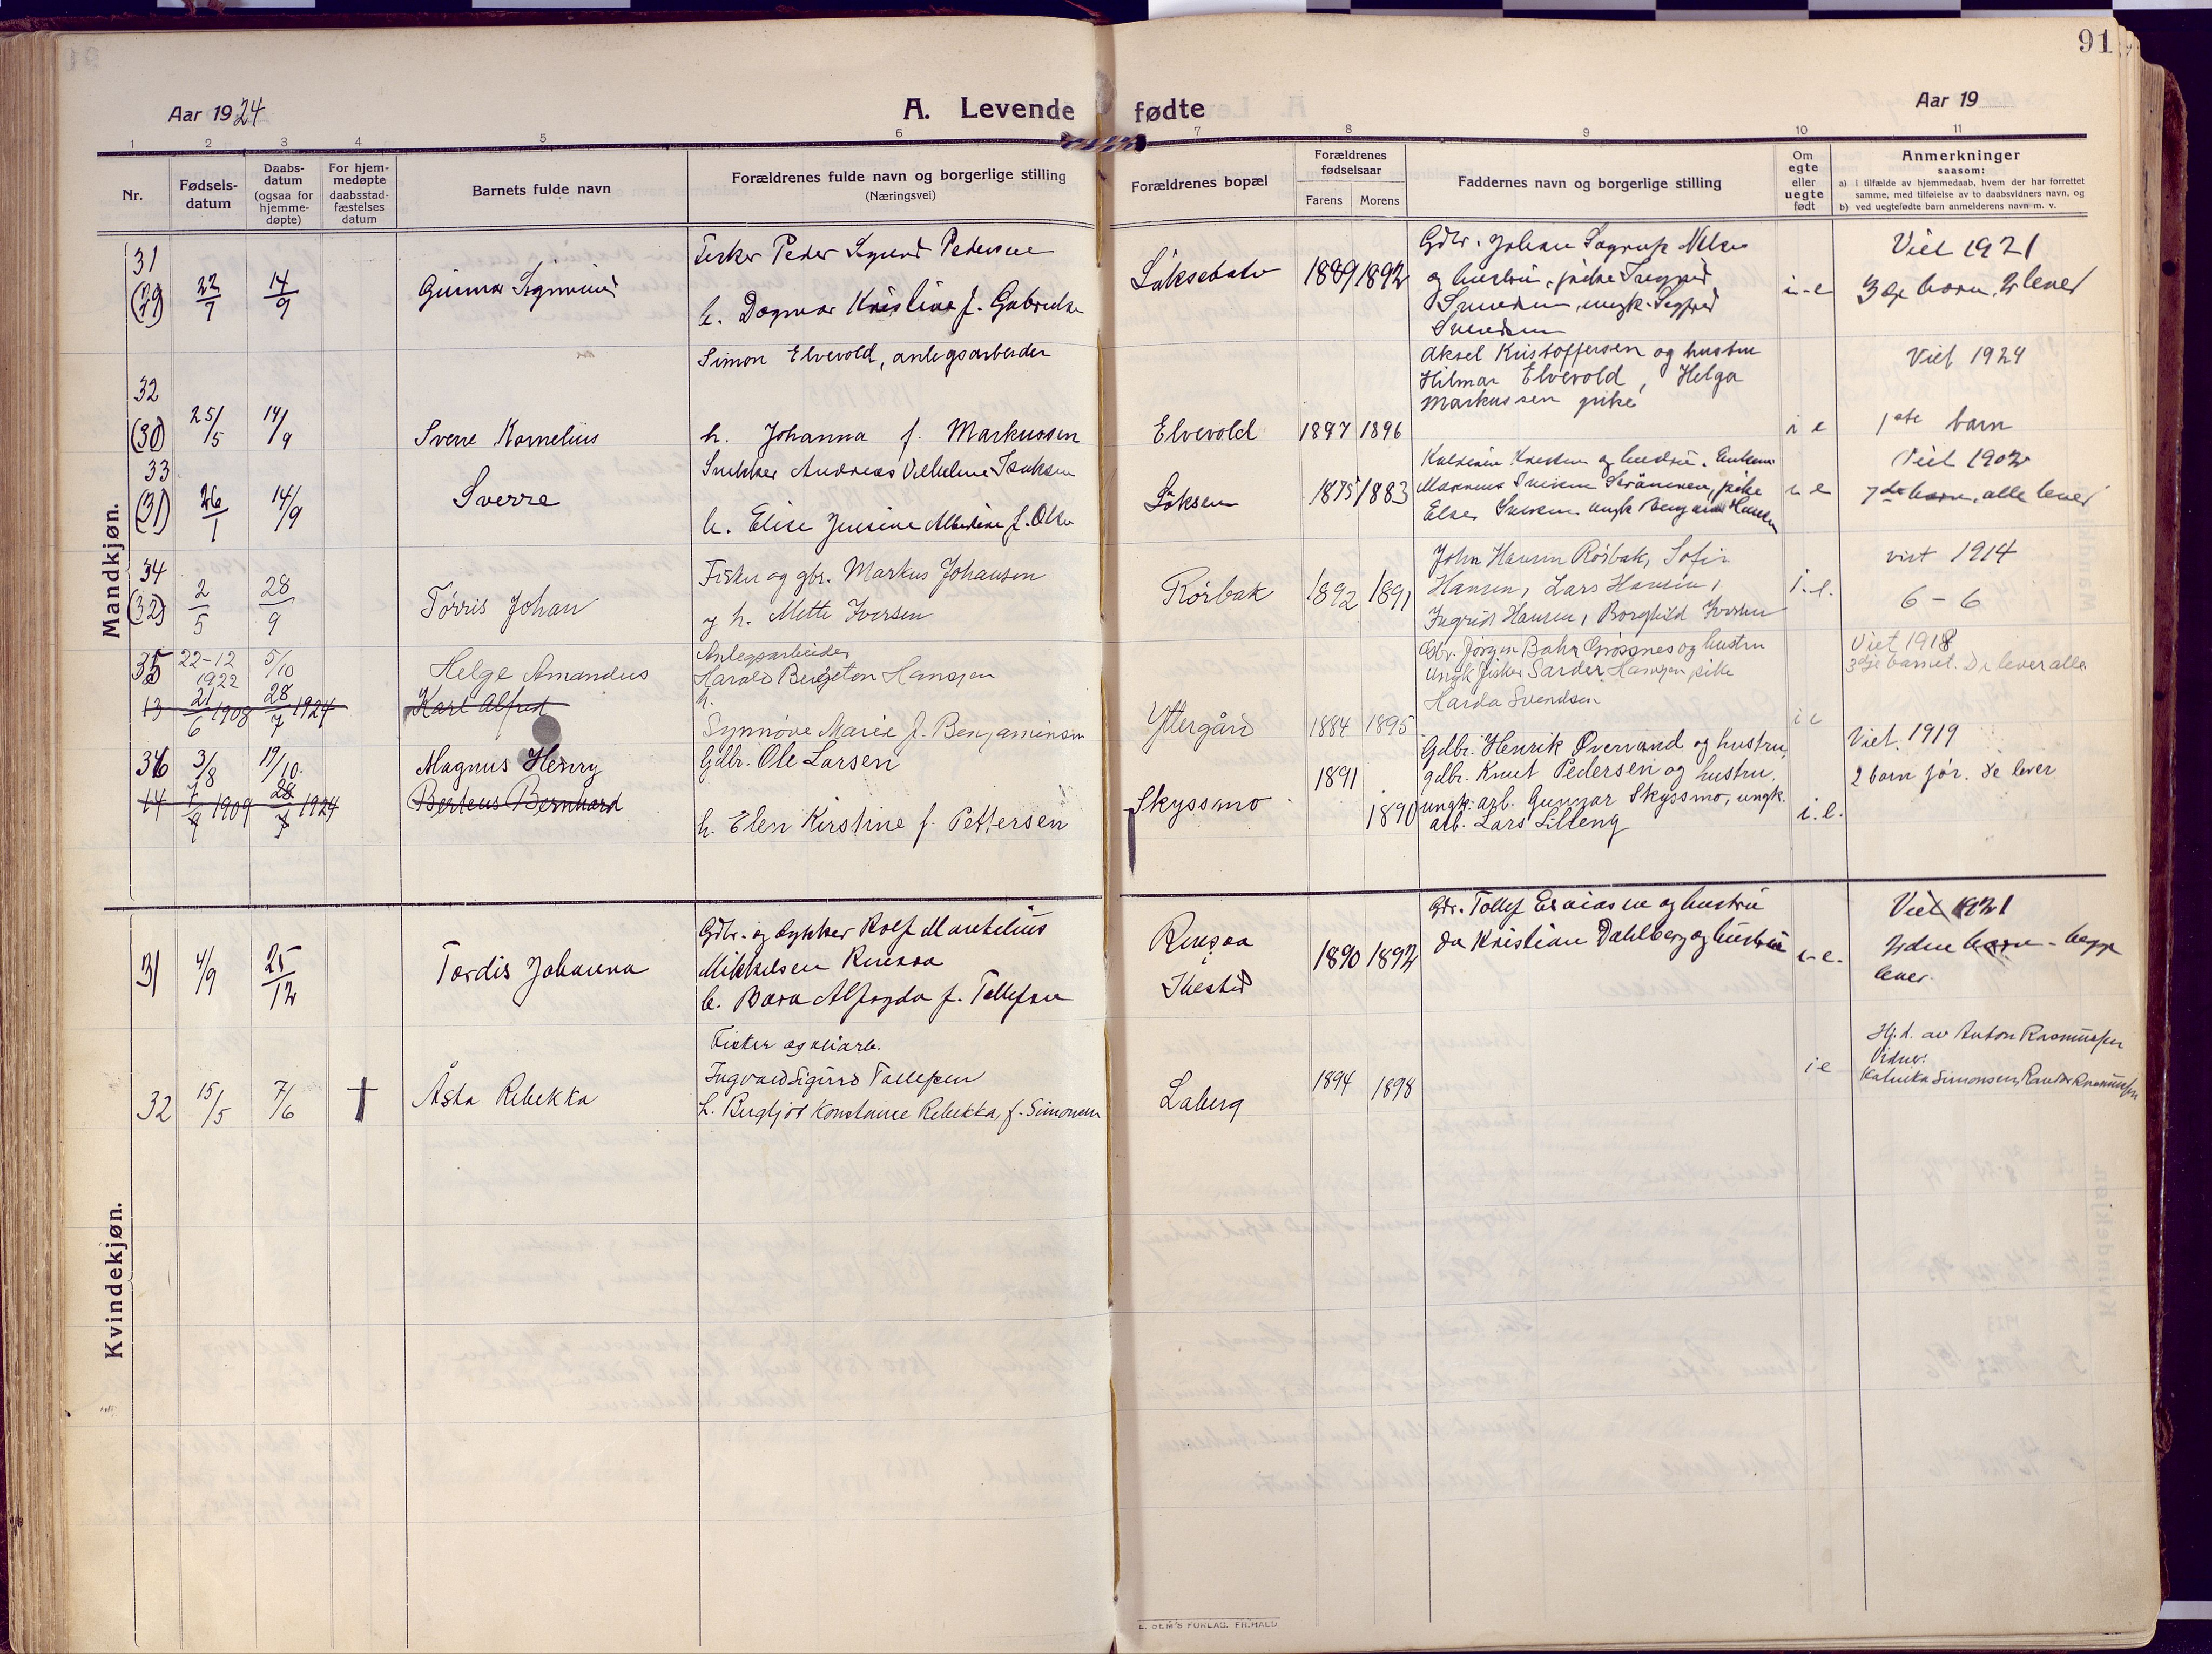 91
Aar 1924
A. Levende fødte
Aar 19
1 2 3 4 5 6 7 8 9 10 11
Nr.
Fødsels-
datum
Daabs-
datum
(ogsaa for
hjemme-
døpte)
For hjem-
medøpte
daabsstad-
fæstelses
datum
Barnets fulde navn
Forældrenes fulde navn og borgerlige stilling
(Næringsvei)
Forældrenes bopæl
Forældrenes
fødselsaar
Farens Morens
Faddernes navn og borgerlige stilling
Om
egte
eller
uegte
født
Anmerkninger
saasom:
a) i tilfælde av hjemmedaab, hvem der har forrettet
samme, med tilføielse av to daabsvidners navn, og
b) ved uegtefødte barn anmelderens navn m. v.
Mandkjøn.
31
(29) 22/7 14/9
Gunnar Sigmund
Fisker Peder Sigurd Pedersen
h. Dagmar Kristine f. Gabrielsen
1889 1892
og hustru, pike
Svendsen, ungk. Sigfred
Svendsen
i-e
Viet 1921
3dje barn, 2 lever
32
(30) 25/5 14/9
Sverre Kornelius
Simon Elvevold, anlegsarbeider
h. Johanna f. Markussen
Elvevold
1897 1896
Aksel Kristoffersen og hustru
Hilmar Elvevold, Helga
Markussen pike
i e
Viet 1924
1ste barn
33
(31) 26/1 14/9
Sverre
Snekker Andreas Vilhelm Isaksen
h. Elise Jensine Albertine f. Olsen
1875 1883
i e
Viet 1902
7de barn, alle lever
34
(32) 2/5 28/9
Tørris Johan
Fisker og gbr. Markus Johansen
og h. Mette Iversen
Rørbak
1892 1891
John Hansen Rørbak, Sofie
Hansen, Lars Hansen,
Ingrid Hansen, Borghild Iversen
i.e.
viet 1914
6 - 6
35 22-12 1922 5/10
Helge Amandus
Anlegsarbeider
Harald Bergeton Hansen
h.
Synnøve Marie f. Benjaminsen
Yttergård
1884 1895
Gbr. Jørgen Bahr Grøssnes og hustru
Ungk. fisker Sarder Hansen, pike
Harda Svendsen
i e
Viet 1918
3dje barnet. De lever alle
13 21/6 1908 28/7 1924
Karl Alfred
36 3/8 19/10.
Magnus Henry
Gdbr. Ole Larsen
h. Elen Kirstine f. Pettersen
Skyssmo
1891
1890
Gdbr. Henrik Øvervand og hustru,
gdbr. Knut Pedersen og hustru,
ungk. arb. Gunnar Skyssmo, ungk.
arb. Lars Lilleng
i.e.
Viet. 1919
2 barn før. De lever
14 1909 28/7 1924
Berteus Bernhard
Kvindekjøn.
31 4/9 25/12
Tordis Johanna
Gdbr. og dykker Rolf Mantelius
Mikkelsen Rensaa
h. Bara Alfrida f. Tollefsen
Rensaa
Ibestad
1890 1892
Gdr. Tollef Esaiassen og hustru
da Kristian Dahlberg og hustru
i-e.
Viet 1921
2den barn - begge
lever.
32 15/5 7/6 †
Åsta Rebekka
Fisker og
Ingvald Sigurd Tollefsen
h. Bergljot Konstance Rebekka, f. Simonsen
Laberg
1894 1898
i e
Hj.d. av Anton Rasmussen
Vidner:
Katrika Simonsen, Randor Rasmussen
E. SEM'S FORLAG, FR.HALD